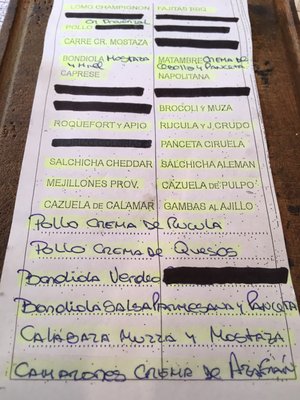 LOMO CHAMPIGNON FAJITAS BBQ
POLLO AL PROVENZAL
CARRE CR. MOSTAZA
BONDIOLA MOSTAZA Y MIEL MATAMBRE CREMA DE CEBOLLA Y PANCETA
CAPRESE NAPOLITANA
BROCOLI Y MUZA
ROQUEFORT Y APIO RUCULA Y J. CRUDO
PANCETA CIRUELA
SALCHICHA CHEDDAR SALCHICHA ALEMAN
MEJILLONES PROV. CAZUELA DE PULPO
CAZUELA DE CALAMAR GAMBAS AL AJILLO
POLLO CREMA DE RUCULA
POLLO CREMA DE QUESOS
BONDIOLA VERDEO
BONDIOLA SALSA PARMESANA Y PANCETA
CALABAZA MUZZA Y MOSTAZA
CAMARONES CREMA DE AZAFRÁN